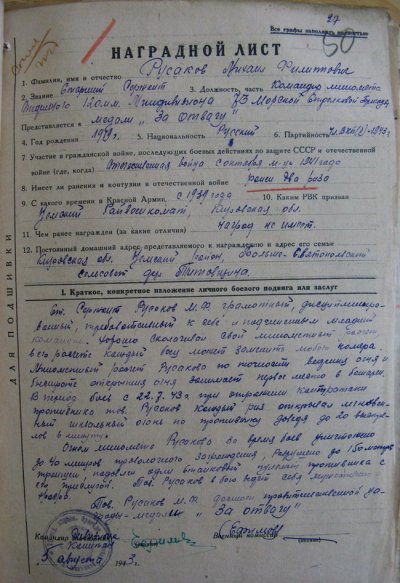 27
Все графы заполнять полностью
50
НАГРАДНОЙ ЛИСТ
1. Фамилия, имя и отчество Русаков Михаил Филиппович
2. Звание Старший Сержант 3. Должность, часть Командир миномета
Отдельного 120мм. Миндивизиона 73 Морской Стрелковой Бригады
Представляется к медали „За отвагу“
4. Год рождения 1919г. 5. Национальность Русский 6. Партийность чл. ВКП(б)-1943г.
7. Участие в гражданской войне, последующих боевых действиях по защите СССР и отечественной
войне (где, когда) Отечественная война с октября м-ца 1941 года
8. Имеет ли ранения и контузии в отечественной войне ранен два раза
9. С какого времени в Красной Армии с 1939 года 10. Каким РВК призван
Уемский Райвоенкомат, Кировская обл.
11. Чем ранее награжден (за какие отличия) наград не имеет.
12. Постоянный домашний адрес представляемого к награждению и адрес его семьи
Кировская обл. Уемский район, Больше-
сельсовет дер.
ДЛЯ ПОДШИВКИ
I. Краткое, конкретное изложение личного боевого подвига или заслуг
Ст. Сержант Русаков М.Ф. грамотный, дисциплиниро-
ванный, требовательный к себе и подчиненным младший
командир. Хорошо сколотил свой минометный расчет
в его расчете каждый боец может заменить любой номер.
Минометный расчет Русакова по точности ведения огня и
быстроте открытия огня занимает первое место в батарее.
В период боев с 22.7.43г при отражении контратак
противника тов. Русаков каждый раз открывал мгновен-
ный шквальный огонь по противнику доведя до 20 выстре-
лов в минуту.
Огнем миномета Русакова во время боев уничтожено
до 40 метров проволочного заграждения, разрушено до 150 метров
траншеи, подавлен один станковый пулемет противника с
его прислугой. Тов. Русаков в бою ведет себя мужественно и
Тов. Русаков М.Ф. достоин правительственной на-
грады-медали „За отвагу“
Командир
(Ефимов)
Военный комиссар
5 августа 1943 г.